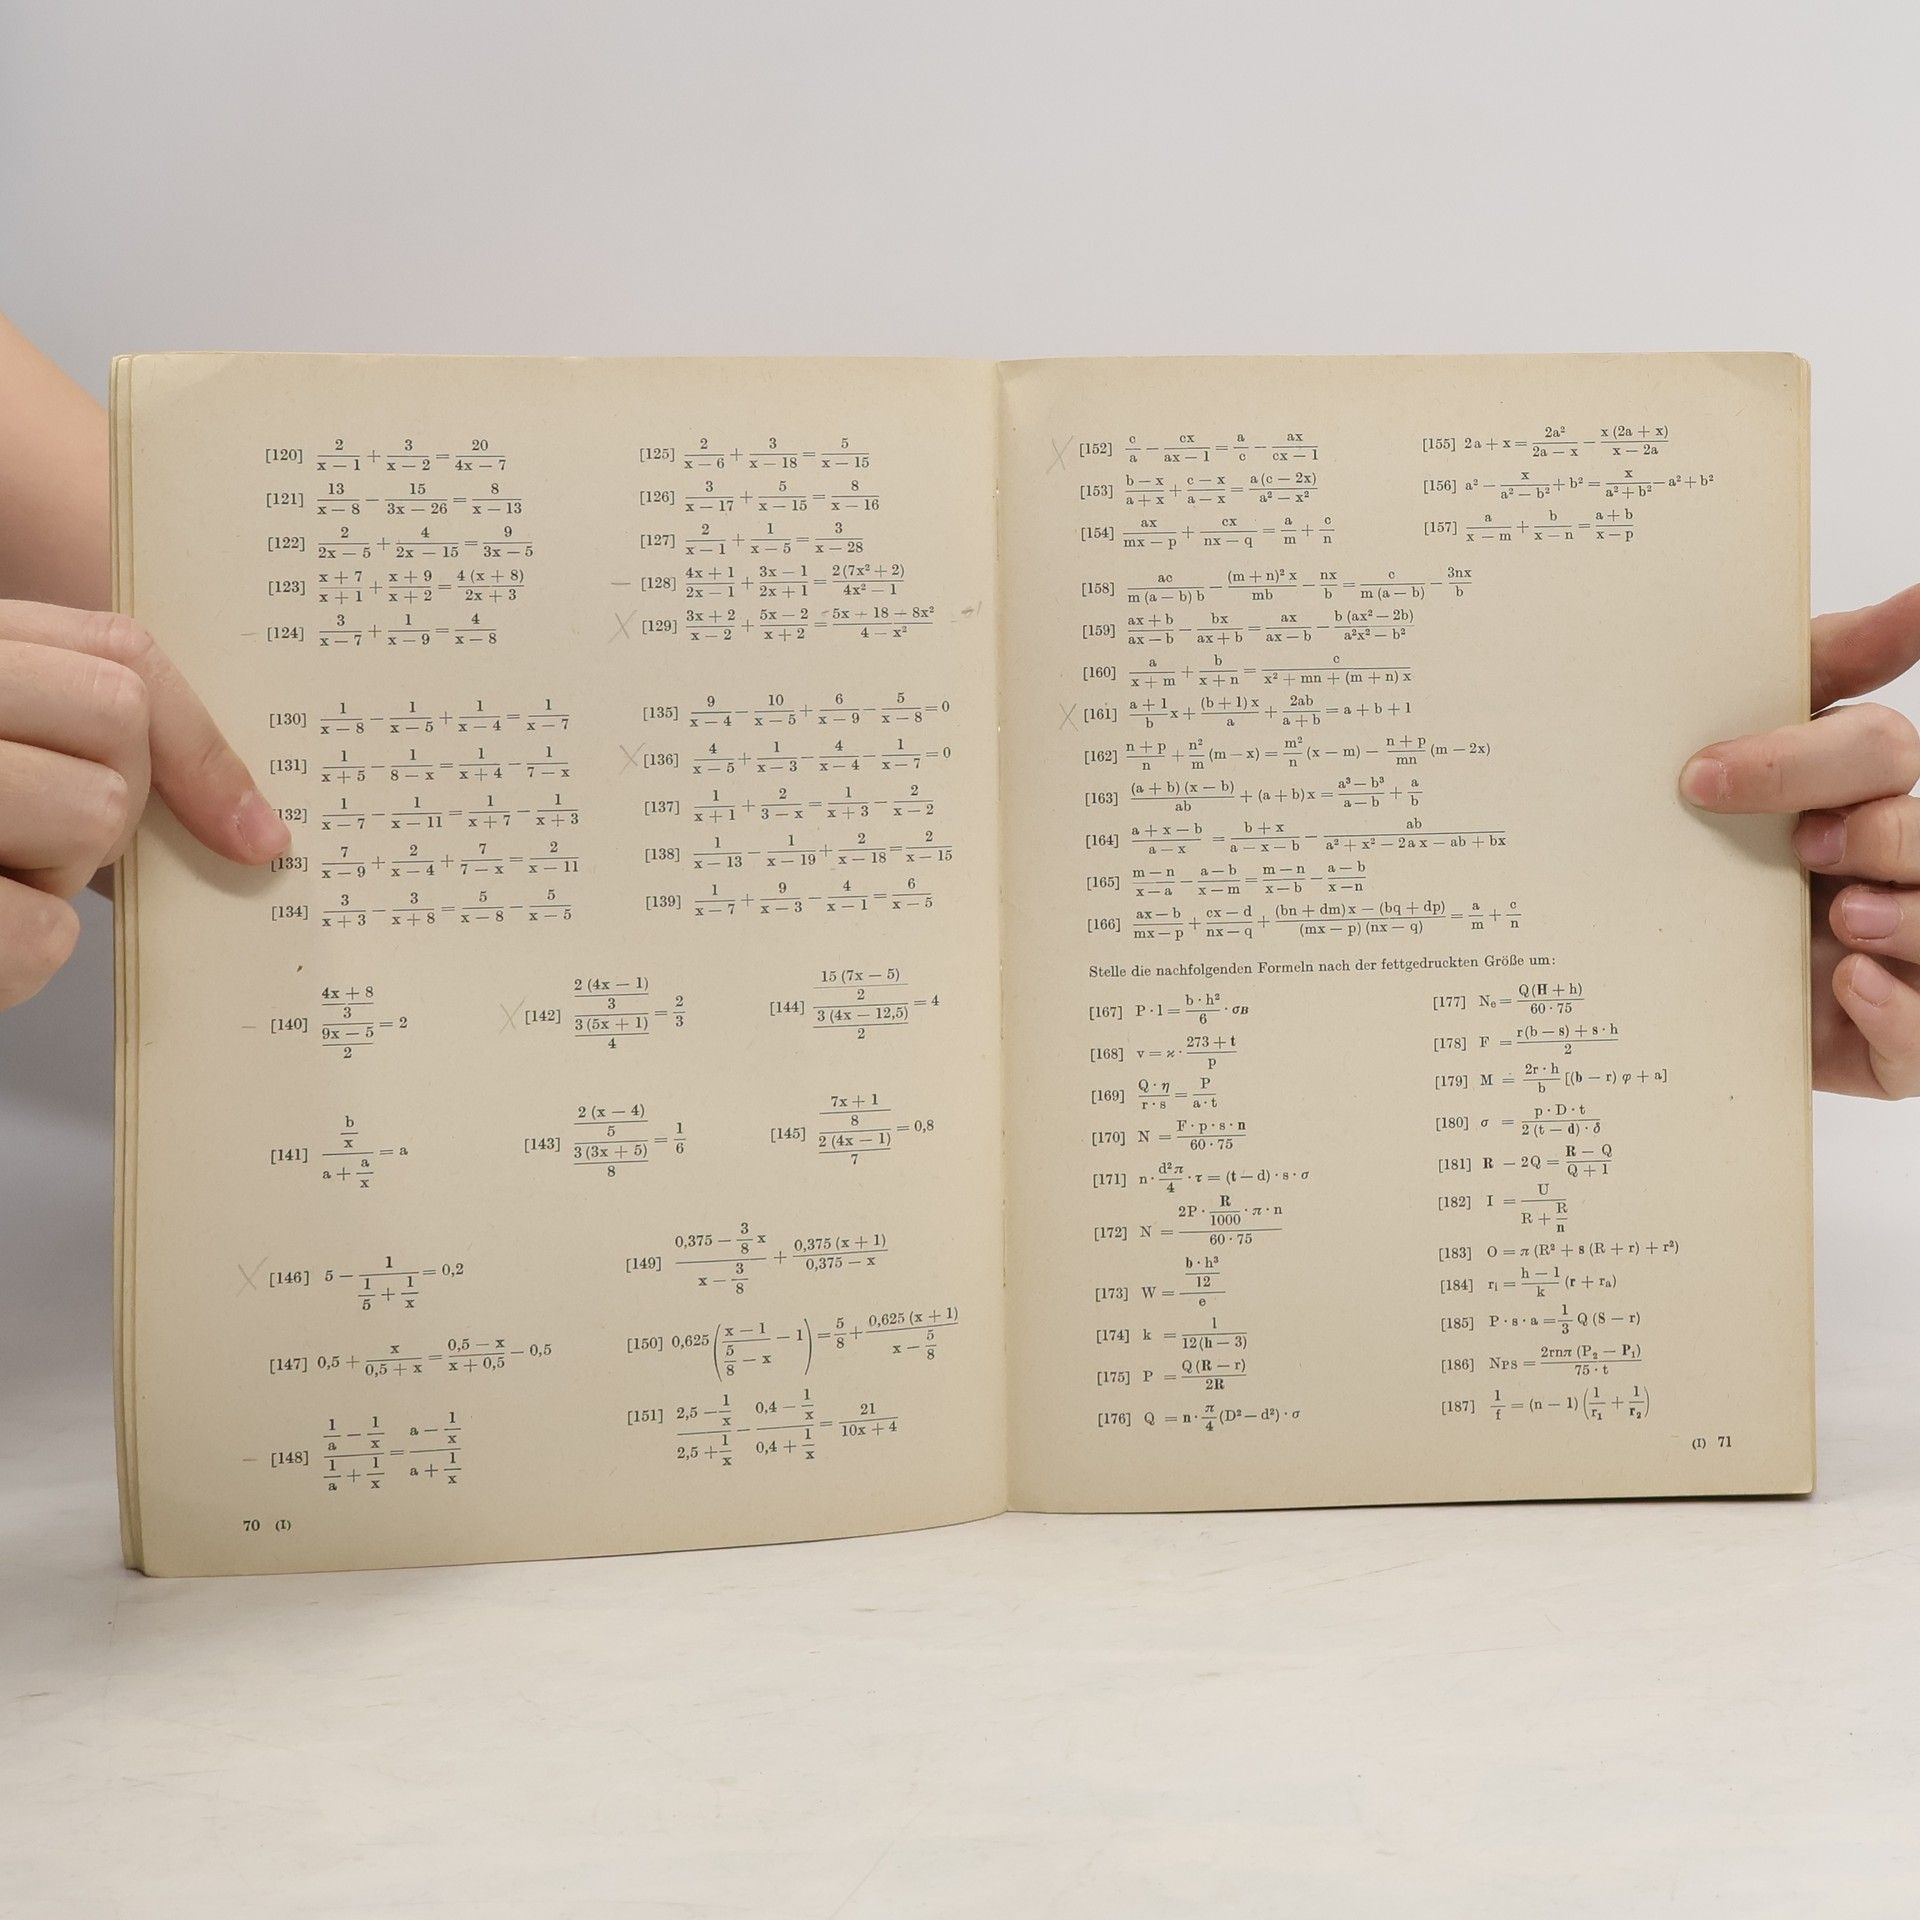 [120] 2/(x − 1) + 3/(x − 2) = 20/(4x − 7)
[121] 13/(x − 8) − 15/(3x − 26) = 8/(x − 13)
[122] 2/(2x − 5) + 4/(2x − 15) = 9/(3x − 5)
[123] (x + 7)/(x + 1) + (x + 9)/(x + 2) = 4 (x + 8)/(2x + 3)
[124] 3/(x − 7) + 1/(x − 9) = 4/(x − 8)
[125] 2/(x − 6) + 3/(x − 18) = 5/(x − 15)
[126] 3/(x − 17) + 5/(x − 15) = 8/(x − 16)
[127] 2/(x − 1) + 1/(x − 5) = 3/(x − 28)
[128] (4x + 1)/(2x − 1) + (3x − 1)/(2x + 1) = 2 (7x² + 2)/(4x² − 1)
[129] (3x + 2)/(x − 2) + (5x − 2)/(x + 2) = (5x + 18 + 8x²)/(4 − x²)
[130] 1/(x − 8) − 1/(x − 5) + 1/(x − 4) = 1/(x − 7)
[131] 1/(x + 5) − 1/(8 − x) = 1/(x + 4) − 1/(7 − x)
[132] 1/(x − 7) − 1/(x − 11) = 1/(x + 7) − 1/(x + 3)
[133] 7/(x − 9) + 2/(x − 4) + 7/(7 − x) = 2/(x − 11)
[134] 3/(x + 3) − 3/(x + 8) = 5/(x − 8) − 5/(x − 5)
[135] 9/(x − 4) − 10/(x − 5) + 6/(x − 9) − 5/(x − 8) = 0
[136] 4/(x − 5) + 1/(x − 3) − 4/(x − 4) − 1/(x − 7) = 0
[137] 1/(x + 1) + 2/(3 − x) = 1/(x + 3) − 2/(x − 2)
[138] 1/(x − 13) − 1/(x − 19) + 2/(x − 18) = 2/(x − 15)
[139] 1/(x − 7) + 9/(x − 3) − 4/(x − 1) = 6/(x − 5)
[140] ((4x + 8)/3)/((9x − 5)/2) = 2
[142] (2 (4x − 1)/3)/(3 (5x + 1)/4) = 2/3
[144] (15 (7x − 5)/2)/(3 (4x − 12,5)/2) = 4
[141] (b/x)/(a + a/x) = a
[143] (2 (x − 4)/5)/(3 (3x + 5)/8) = 1/6
[145] ((7x + 1)/8)/(2 (4x − 1)/7) = 0,8
[146] 5 − 1/(1/5 + 1/x) = 0,2
[147] 0,5 + x/(0,5 + x) = (0,5 − x)/(x + 0,5) − 0,5
[148] (1/a − 1/x)/(1/a + 1/x) = (a − 1/x)/(a + 1/x)
[149] (0,375 − 3/8 x)/(x − 3/8) + 0,375 (x + 1)/(0,375 − x)
[150] 0,625 ((x − 1)/(5/8 − x) − 1) = 5/8 + 0,625 (x + 1)/(x − 5/8)
[151] (2,5 − 1/x)/(2,5 + 1/x) − (0,4 − 1/x)/(0,4 + 1/x) = 21/(10x + 4)
70 (I)
[152] c/a − cx/(ax − 1) = a/c − ax/(cx − 1)
[153] (b − x)/(a + x) + (c − x)/(a − x) = a (c − 2x)/(a² − x²)
[154] ax/(mx − p) + cx/(nx − q) = a/m + c/n
[155] 2a + x = 2a²/(2a − x) − x (2a + x)/(x − 2a)
[156] a² − x/(a² − b²) + b² = x/(a² + b²) − a² + b²
[157] a/(x − m) + b/(x − n) = (a + b)/(x − p)
[158] ac/(m (a − b) b) − (m + n)² x/mb − nx/b = c/(m (a − b)) − 3nx/b
[159] (ax + b)/(ax − b) − bx/(ax + b) = ax/(ax − b) − b (ax² − 2b)/(a²x² − b²)
[160] a/(x + m) + b/(x + n) = c/(x² + mn + (m + n) x)
[161] (a + 1)/b x + (b + 1) x/a + 2ab/(a + b) = a + b + 1
[162] (n + p)/n + n²/m (m − x) = m²/n (x − m) − (n + p)/mn (m − 2x)
[163] (a + b) (x − b)/ab + (a + b) x = (a³ − b³)/(a − b) + a/b
[164] (a + x − b)/(a − x) = (b + x)/(a − x − b) − ab/(a² + x² − 2ax − ab + bx)
[165] (m − n)/(x − a) − (a − b)/(x − m) = (m − n)/(x − b) − (a − b)/(x − n)
[166] (ax − b)/(mx − p) + (cx − d)/(nx − q) + ((bn + dm) x − (bq + dp))/((mx − p) (nx − q)) = a/m + c/n
Stelle die nachfolgenden Formeln nach der fettgedruckten Größe um:
[167] P · l = b · h²/6 · σB
[168] v = ϰ · (273 + t)/p
[169] Q · η/(r · s) = P/(a · t)
[170] N = F · p · s · n/(60 · 75)
[171] n · d²π/4 · τ = (t − d) · s · σ
[172] N = (2P · R/1000 · π · n)/(60 · 75)
[173] W = (b · h³/12)/e
[174] k = l/(12 (h − 3))
[175] P = Q (R − r)/2R
[176] Q = n · π/4 (D² − d²) · σ
[177] Ne = Q (H + h)/(60 · 75)
[178] F = (r (b − s) + s · h)/2
[179] M = 2r · h/b [(b − r) φ + a]
[180] σ = p · D · t/(2 (t − d) · δ)
[181] R − 2Q = (R − Q)/(Q + 1)
[182] I = U/(R + R/n)
[183] O = π (R² + s (R + r) + r²)
[184] ri = (h − 1)/k (r + ra)
[185] P · s · a = 1/3 Q (S − r)
[186] NPS = 2rnπ (P₂ − P₁)/(75 · t)
[187] 1/f = (n − 1) (1/r₁ + 1/r₂)
(I) 71